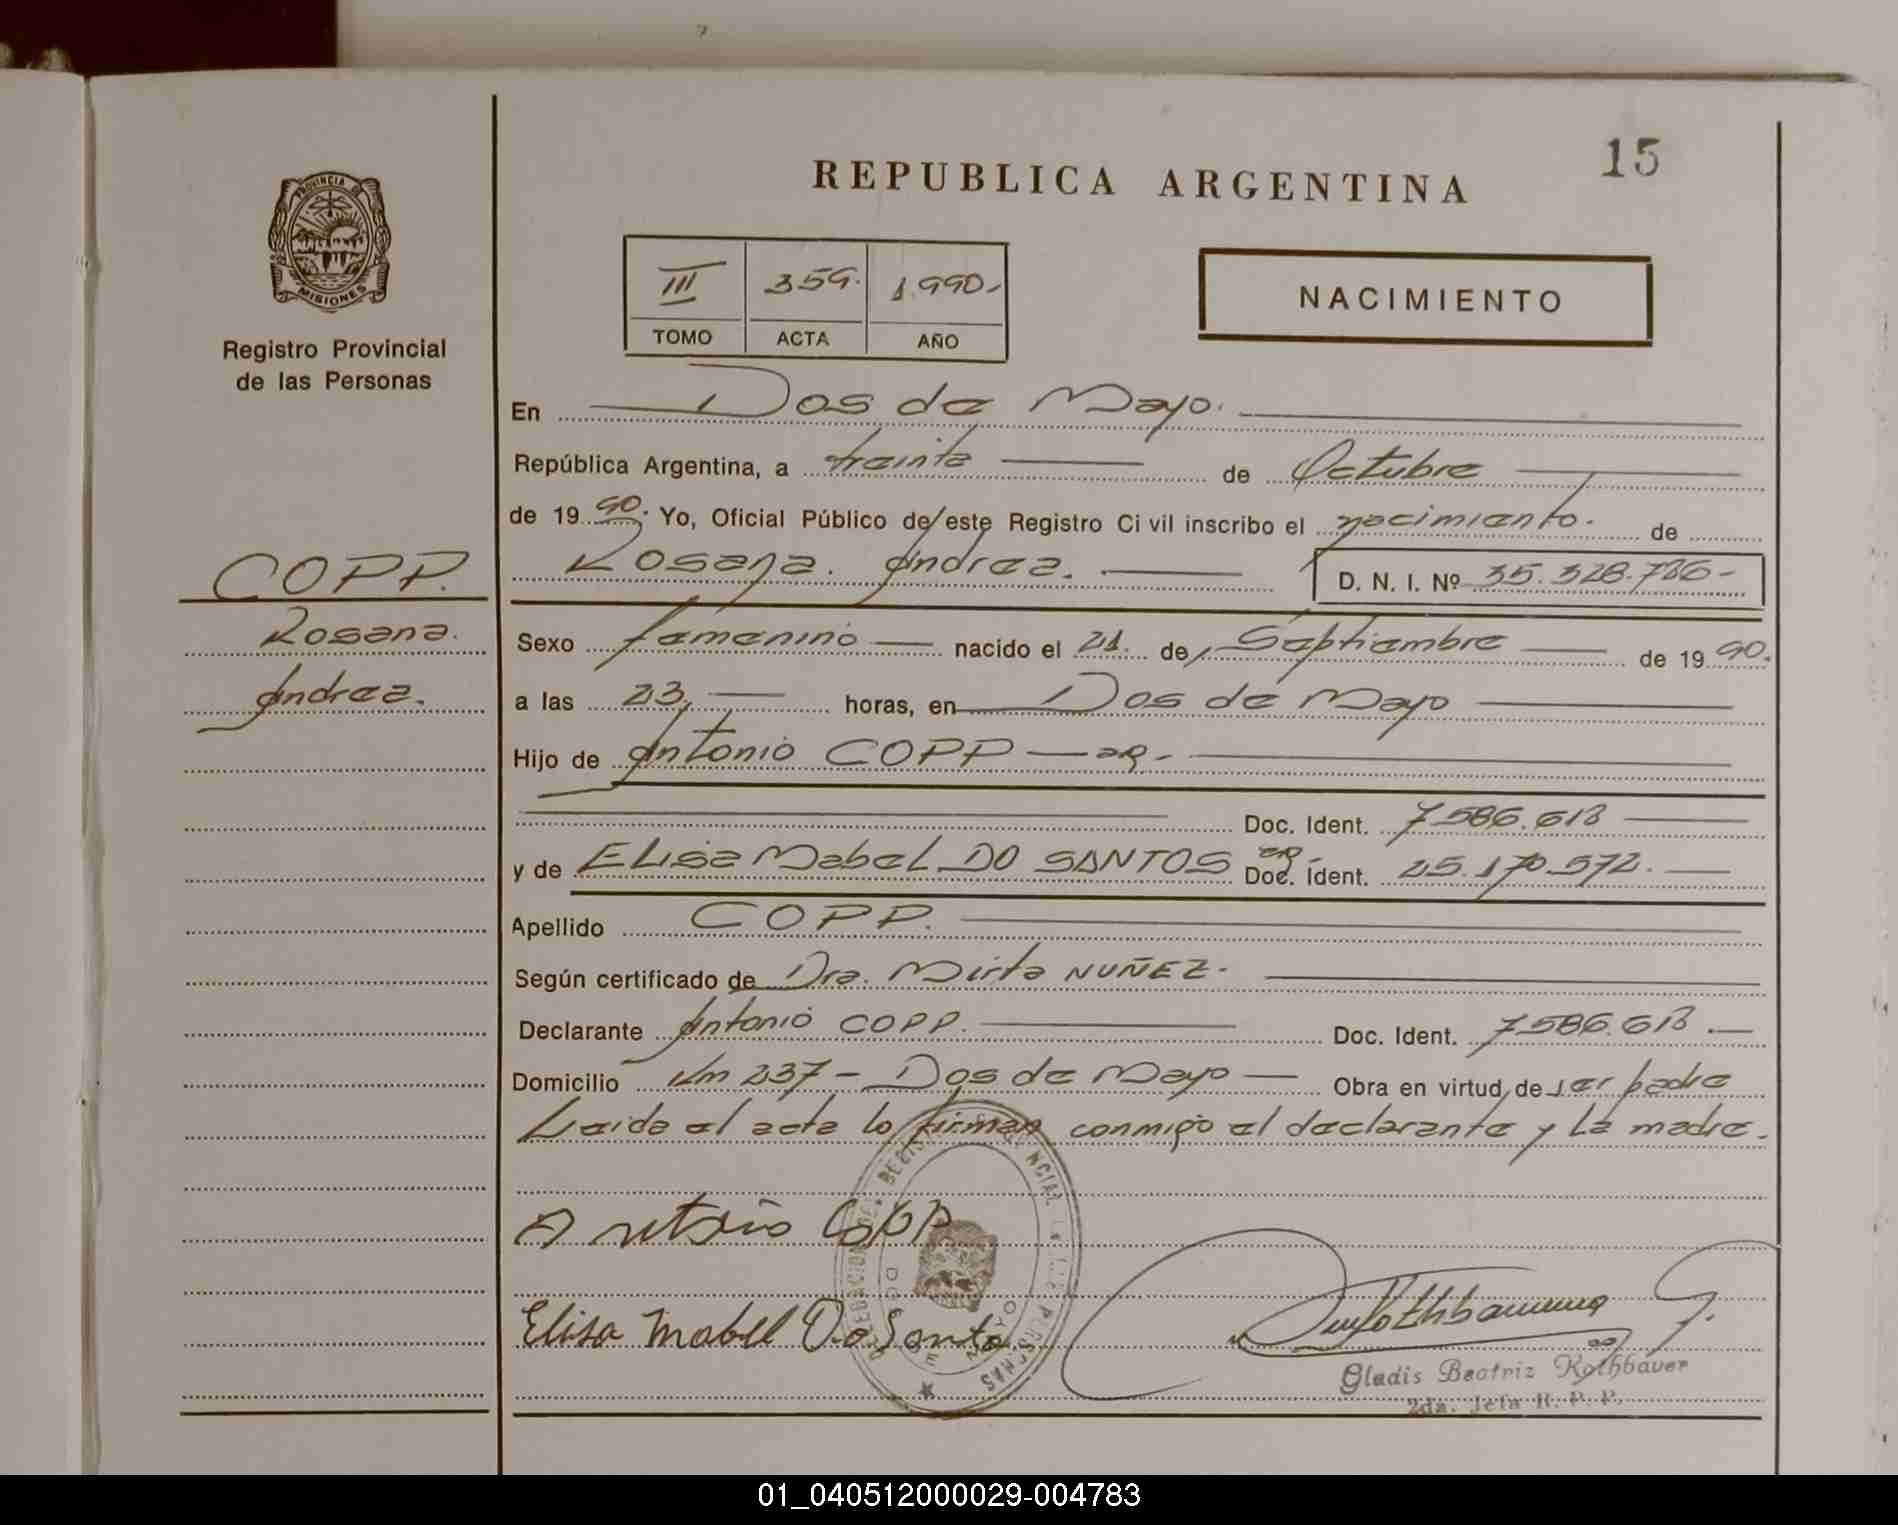 15
REPUBLICA ARGENTINA
PROVINCIA DE
MISIONES
Registro Provincial
de las Personas
III 359. 1.990.-
TOMO ACTA AÑO
NACIMIENTO
En Dos de Mayo.
República Argentina, a treinta de Octubre
de 19 90. Yo, Oficial Público de este Registro Civil inscribo el nacimiento. de
Rosana. Andrea. D. N. I. Nº 35.328.786-
COPP.
Rosana.
Andrea.
Sexo femenino nacido el 21. de Septiembre de 19 90.
a las 23, horas, en Dos de Mayo
Hijo de Antonio COPP — ar.-
Doc. Ident. 7.586.618
y de Elisa Mabel DO SANTOS ar.- Doc. Ident. 25.170.572.
Apellido COPP.
Según certificado de Dra. Mirta NUÑEZ.
Declarante Antonio COPP. Doc. Ident. 7.586.618.
Domicilio Km 237 - Dos de Mayo Obra en virtud de ser padre
Leida el acta lo firman conmigo el declarante y la madre.
Antonio Copp
Elisa Mabel Do Santo
Rothbauer G.
Gladis Beatriz Rothbauer
2da. Jefa R. P. P.
01_040512000029-004783